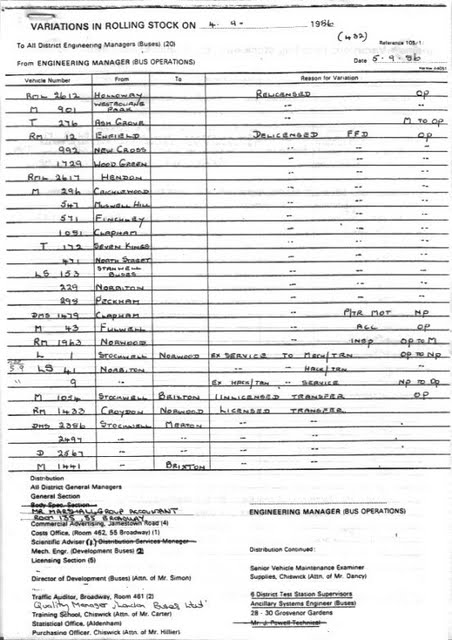 VARIATIONS IN ROLLING STOCK ON 4. 9. 1986
(432)
To All District Engineering Managers (Buses) (20) Reference 105/1
From ENGINEERING MANAGER (BUS OPERATIONS) Date 5-9-86
Vehicle Number From To Reason for Variation
RML 2612 HOLLOWAY RELICENSED OP
M 901 WESTBOURNE PARK -- --
T 276 ASH GROVE -- M TO OP
RM 12 ENFIELD DELICENSED FFD OP
992 NEW CROSS -- -- --
1729 WOOD GREEN -- -- --
RML 2617 HENDON -- -- --
M 296 CRICKLEWOOD -- -- --
547 MUSWELL HILL -- -- --
571 FINCHLEY -- -- --
1051 CLAPHAM -- -- --
T 172 SEVEN KINGS -- -- --
471 NORTH STREET -- -- --
LS 153 STANWELL BUSES -- -- --
229 NORBITON -- -- --
298 PECKHAM -- -- --
DMS 1479 CLAPHAM -- P/TR MOT NP
M 43 FULWELL -- ACC OP
RM 1963 NORWOOD -- INSP OP TO M
L 1 STOCKWELL NORWOOD EX SERVICE TO MECH/TRN OP TO NP
5.9 LS 41 NORBITON -- -- MECH/TRN --
" 9 -- EX MECH/TRN -- SERVICE NP TO OP
M 1054 STOCKWELL BRIXTON UNLICENSED TRANSFER OP
RM 1433 CROYDON NORWOOD LICENSED TRANSFER
DMS 2386 STOCKWELL MERTON -- --
2497 -- -- -- --
D 2567 -- -- -- --
M 1441 -- BRIXTON -- --
Distribution
All District General Managers
General Section
Body Spec. Section
MR MARSHALL GROUP ACCOUNTANT
ROOM 135 55 BROADWAY
ENGINEERING MANAGER (BUS OPERATIONS)
Commercial Advertising, Jamestown Road (4)
Costs Office, (Room 462, 55 Broadway) (1)
Scientific Adviser (1) Distribution Services Manager
Mech. Engr. (Development Buses) (2)
Distribution Continued:
Licensing Section (5)
Senior Vehicle Maintenance Examiner
Director of Development (Buses) (Attn. of Mr. Simon)
Supplies, Chiswick (Attn. of Mr. Dancy)
Traffic Auditor, Broadway, Room 461 (2)
6 District Test Station Supervisors
Quality Manager, London Buses Ltd
Ancillary Systems Engineer (Buses)
Training School, Chiswick (Attn. of Mr. Carter)
28 - 30 Grosvenor Gardens
Statistical Office, (Aldenham)
Mr. J. Powell Technical
Purchasing Officer, Chiswick (Attn. of Mr. Hillier)